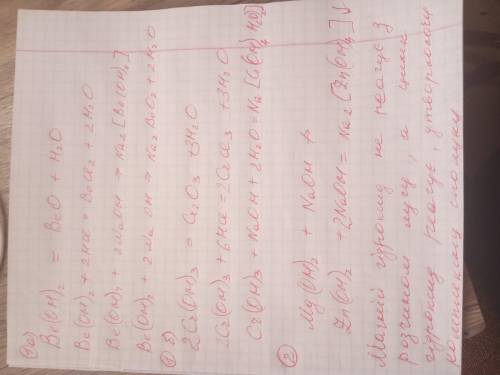 ① а)
Be(OH)₂ = BeO + H₂O
Be(OH)₂ + 2HCl = BeCl₂ + 2H₂O
Be(OH)₂ + 2NaOH = Na₂[Be(OH)₄]
Be(OH)₂ + 2NaOH = Na₂BeO₂ + 2H₂O
① б)
2Cr(OH)₃ = Cr₂O₃ + 3H₂O
2Cr(OH)₃ + 6HCl = 2CrCl₃ + 3H₂O
Cr(OH)₃ + NaOH + 2H₂O = Na[Cr(OH)₄ H₂O]
②
Mg(OH)₂ + NaOH ↛
Zn(OH)₂ + 2NaOH = Na₂[Zn(OH)₄]↓
Магній гідроксид не реагує з
розчином лугу, а цинк
гідроксид реагує, утворюючи
комплексну сполуку